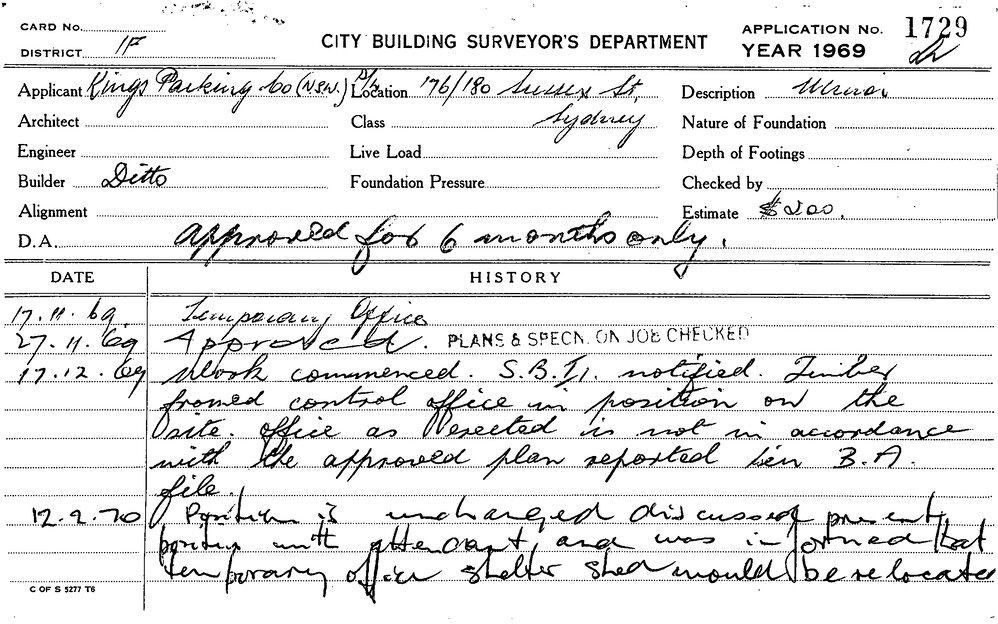 CARD No.
DISTRICT 1F
CITY BUILDING SURVEYOR'S DEPARTMENT
APPLICATION No. 1729
YEAR 1969
Applicant Kings Parking Co (N.S.W.) P/L Location 176/180 Sussex St, Description
Architect Class Sydney Nature of Foundation
Engineer Live Load Depth of Footings
Builder Ditto Foundation Pressure Checked by
Alignment Estimate $200.
D.A. approved for 6 months only.
DATE HISTORY
17.11.69 Temporary Office
27.11.69 Approved. PLANS & SPECN. ON JOB CHECKED
17.12.69 Work commenced. S.B.I. notified. Timber
framed control office in position on the
site. office as erected is not in accordance
with the approved plan reported in B.A.
file.
12.2.70 Position is unchanged discussed present
position with attendant and was informed that
temporary office shelter shed would be relocated
C OF S 5277 T6